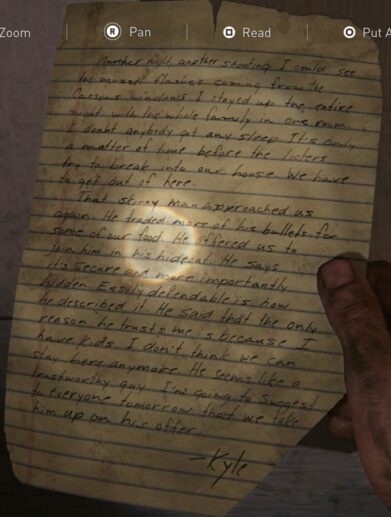 Zoom
R Pan
Read
Put A
Another night, another shooting. I could see
the muzzle flashes coming from the
Carsons windows. I stayed up the entire
night with the whole family in one room
I doubt anybody got any sleep. It's only
a matter of time before the looters
try to break into our house. We have
to get out of here.
That skinny man approached us
again. He traded more of his bullets for
some of our food. He offered us to
join him in his hideout. He says
it's secure and more importantly
hidden. Easily defendable is how
he described it. He said that the only
reason he trusts me is because I
have kids. I don't think we can
stay here anymore. He seems like a
trustworthy guy. I'm going to suggest
to everyone tomorrow that we take
him up on his offer.
-Kyle